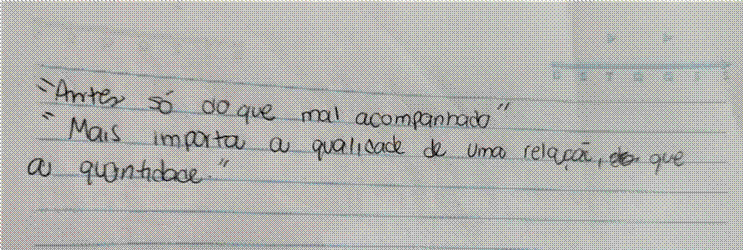 "Antes só do que mal acompanhado"
"Mais importa a qualidade de uma relação, que
a quantidade."